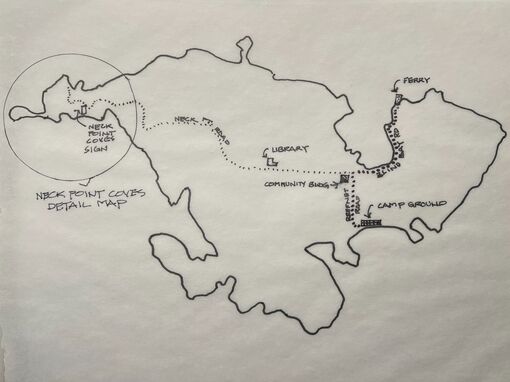 FERRY
NECK PT.
ROAD
BLIND BAY RD
NECK
POINT
COVES
SIGN
LIBRARY
COMMUNITY BLDG
REEFNET
ROAD
CAMP GROUND
NECK POINT COVES
DETAIL MAP